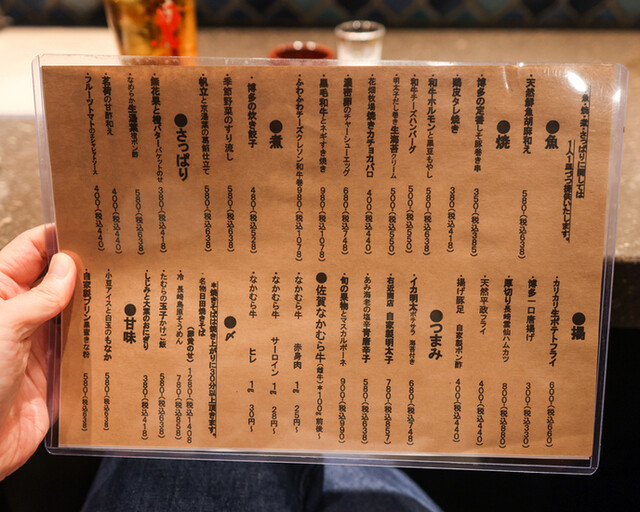 魚・焼・煮・さっぱりに関しては
一人一品づつ提供いたします。
●魚
・天然鮮魚胡麻和え 580(税込638)
●焼
・博多の定番しそ豚巻き串 350(税込385)
・鶏皮タレ焼き 380(税込418)
・和牛ホルモンと黒豆もやし 580(税込638)
・和牛チーズハンバーグ 500(税込550)
・明太子だし巻き生海苔クリーム 500(税込550)
・花畑牧場焼きカチョカバロ 400(税込440)
・チャーシューエッグ 680(税込748)
・黒毛和牛とネギすき焼き 980(税込1078)
・ふわふわチーズクレソン和牛巻980(税込1078)
●煮
・博多の炊き餃子 480(税込528)
・季節野菜のすり流し 580(税込638)
・帆立と京湯葉の黒胡椒仕立て 580(税込638)
●さっぱり
・無花果と櫻バターバケットのせ 380(税込418)
・なめらか生湯葉ポン酢 580(税込638)
・茗荷の甘酢和え 400(税込440)
・フルーツトマトのはちみつマリネ 400(税込440)
●揚
・カリカリ生ポテトフライ 600(税込660)
・博多一口唐揚げ 300(税込330)
・厚切り長崎雲仙ハムカツ 800(税込880)
・天然平政フライ 400(税込440)
・揚げ豚足 自家製ポン酢 400(税込440)
●つまみ
・イカ明太 ポテサラ 海苔付き 680(税込748)
・右近商店 自家製明太子 780(税込857)
・あら海老の塩辛青唐辛子 580(税込638)
・旬の果物とマスカルポーネ 900(税込990)
●佐賀なかむら牛(雌牛)*100g前後〜
・なかむら牛 赤身肉 1g 25円〜
・なかむら牛 サーロイン 1g 28円〜
・なかむら牛 ヒレ 1g 30円〜
●〆
*焼きそばは焼き上がりに30分以上頂きます。
・名物日田焼きそば (卵黄のせ)1280(税込1408
・冷 長崎島原そうめん 780(税込858)
・たむらの玉子かけご飯 580(税込638)
・しじみと大葉のおにぎり 380(税込418)
●甘味
・小豆アイスと白玉のもなか 580(税込638)
・自家製プリン黒蜜きな粉 580(税込638)